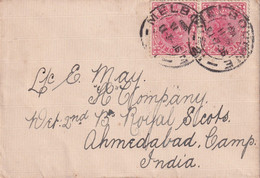 MELBOURNE
L/c E. May.
H Company.
Det. 2nd Bn Royal Scots.
Ahmedabad, Camp.
India.